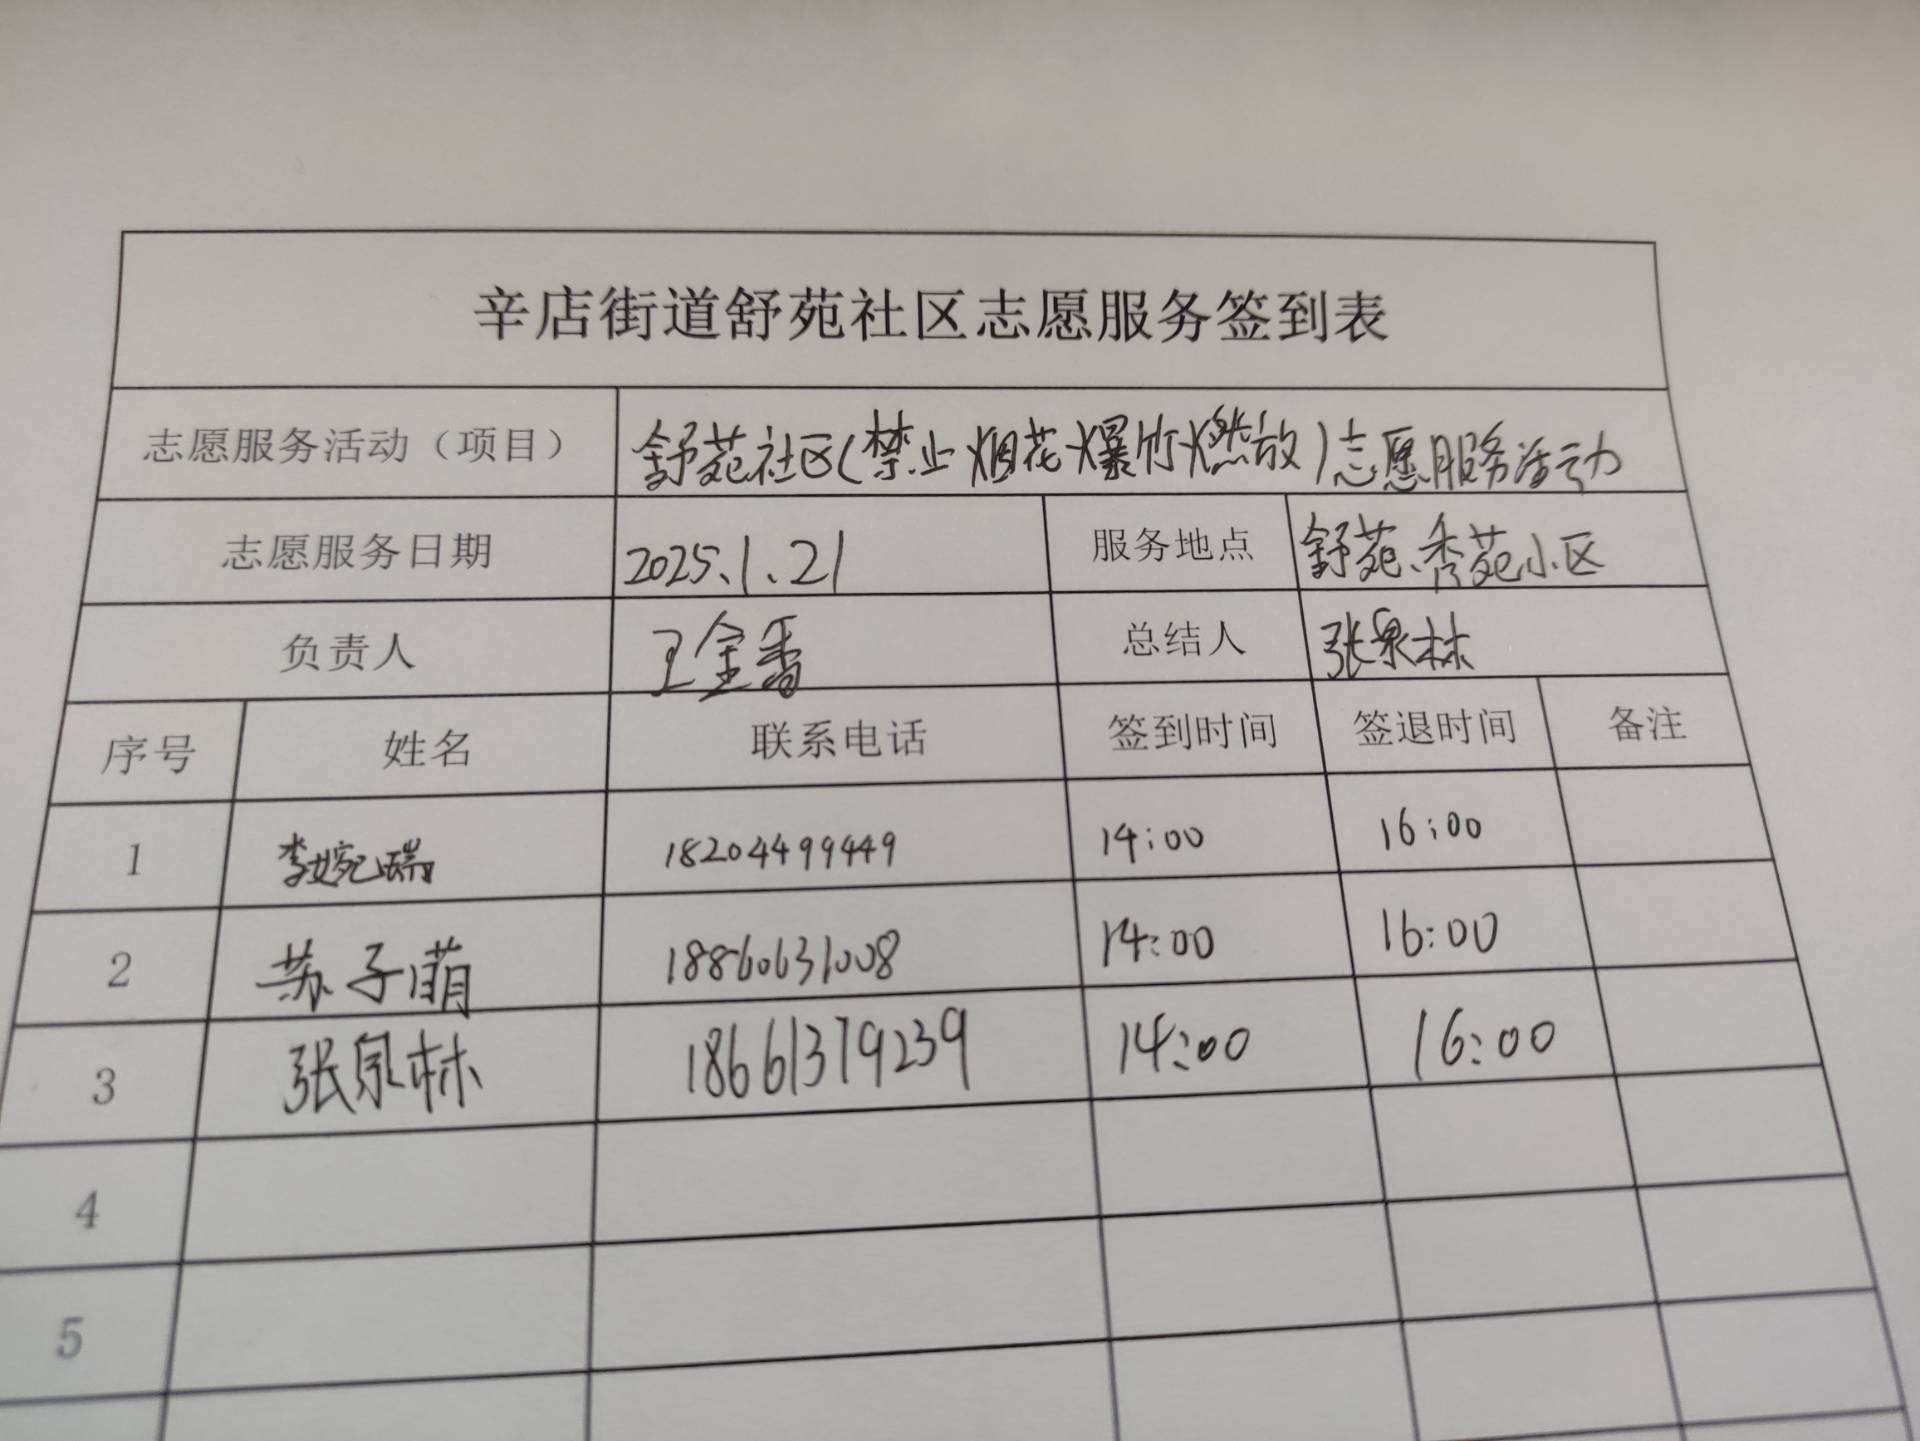 辛店街道舒苑社区志愿服务签到表
志愿服务活动（项目） 舒苑社区(禁止烟花爆竹燃放)志愿服务活动
志愿服务日期 2025.1.21 服务地点 舒苑、秀苑小区
负责人 王金香 总结人 张泉林
序号 姓名 联系电话 签到时间 签退时间 备注
1 李婉瑞 18204499449 14:00 16:00
2 苏子萌 18860631008 14:00 16:00
3 张泉林 18661379239 14:00 16:00
4
5